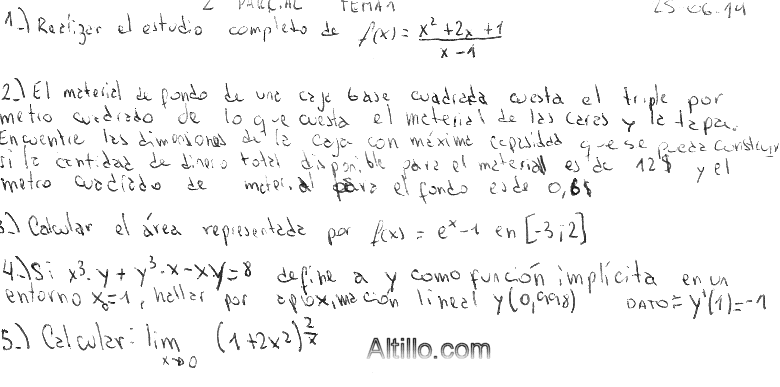 2 PARCIAL TEMA 1 25 06-14
1.) Realizar el estudio completo de f(x) = x² + 2x + 1 / x - 1
2.) El material de fondo de una caja base cuadrada cuesta el triple por
metro cuadrado de lo que cuesta el material de las caras y la tapa.
Encuentre las dimensiones de la caja con máxima capacidad que se pueda construir
si la cantidad de dinero total disponible para el material es de 12$ y el
metro cuadrado de material para el fondo es de 0,6$
3.) Calcular el área representada por f(x) = e^x - 1 en [-3;2]
4.) Si x³·y + y³·x - xy = 8 define a y como función implícita en un
entorno x₀=1, hallar por aproximación lineal y(0,998) DATO = y'(1) = -1
5.) Calcular: lim x→0 (1+2x²)^(2/x)
Altillo.com